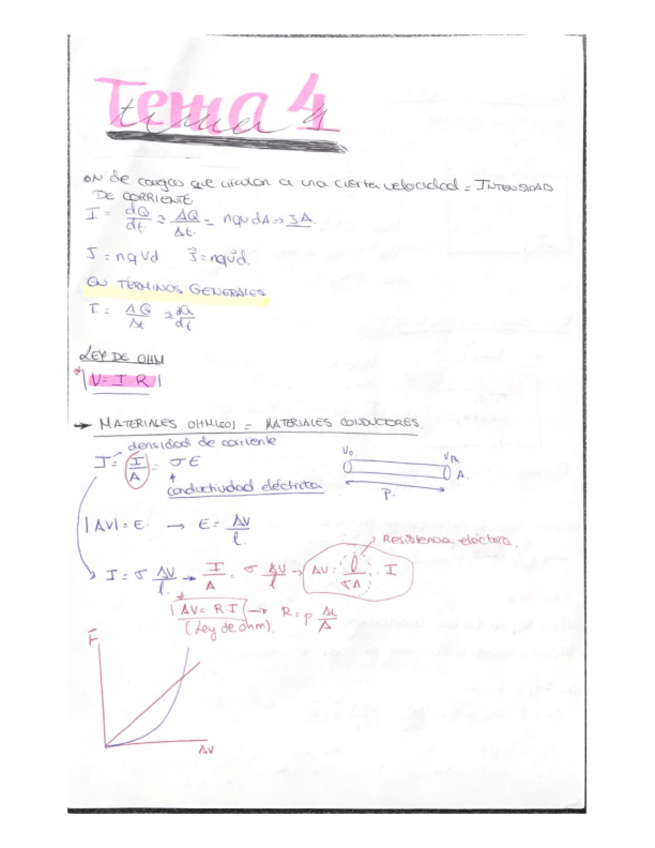 Tema 4
tema 4
ON de cargas que circulan a una cierta velocidad = INTENSIDAD
DE CORRIENTE
I = dQ/dt ≈ ΔQ/Δt = nqvdA => JA
J = nqVd J⃗ = nqv⃗d
EN TÉRMINOS GENERALES
I = ΔQ/Δt ≈ dQ/dt
LEY DE OHM
* | V = I R |
→ MATERIALES OHMICOS = MATERIALES CONDUCTORES.
densidad de corriente
J = I/A = σE
conductividad eléctrica
A.
|ΔV| = E· → E = ΔV/l.
Resistencia eléctrica.
J = σ ΔV/l. → I/A = σ ΔV/l → ΔV = l/σA · I
* | ΔV = R·I | → R = ρ Δl/A
(Ley de ohm).
ΔV